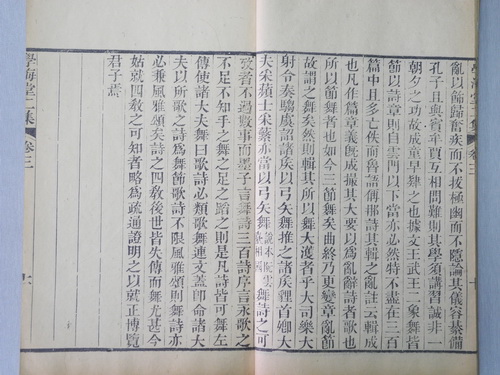 亂以飭歸奮疾而不拔極幽而不隱論其儀容綦備
孔子且與賓牟賈互相問難則其學須講習誠非一
朝夕之功故成童舞象年過二十舞大夏也據文王武王二象舞皆
節以詩章則自雲門以下當亦必然特不盡在三百
篇中且多亡佚而魯語偁那詩其輯之亂註云輯成
也凡作篇章義既成撮其大要以為亂辭詩者歌也
所以節舞者也如今三節舞矣曲終乃更變章亂節
故謂之亂矣然則輯其所以舞大濩者乎大司樂大
射令奏騶虞詔諸矦以弓矢舞推之諸矦貍首卿大
夫采蘋士采蘩亦當以弓矢舞
舞詩之可
攷者不過數事而墨子言舞詩三百詩序言永歌之
不足不知手之舞之足之蹈之則是凡詩皆可舞左
傳使諸大夫舞曰歌詩必類歌舞連文蓋即命諸大
夫以所歌之詩為舞節歌詩不限風雅頌則舞詩亦
必兼風雅頌矣詩之四教後世皆失傳而舞尤甚今
姑就四教之可知者略為疏通證明之以就正博覽
君子焉
學海堂二集
卷三